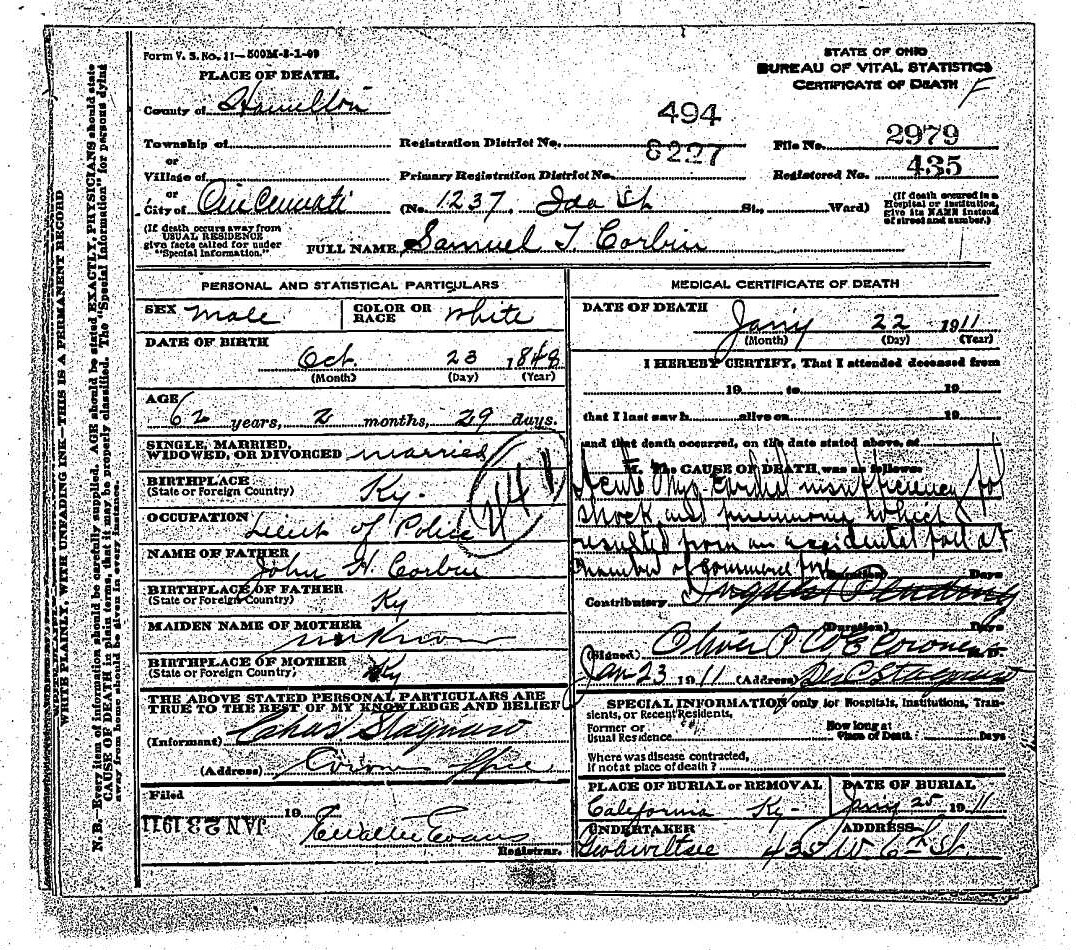 Form V. S. No. 11—500M-8-1-09
STATE OF OHIO
BUREAU OF VITAL STATISTICS
CERTIFICATE OF DEATH
F
PLACE OF DEATH.
County of Hamilton
494
Township of
Registration District No.
File No. 2979
or
8227
Village of
Primary Registration District No.
Registered No. 435
or
City of Cincinnati
(No. 1237, Ida St St., Ward)
(If death occured in a Hospital or Institution, give its NAME instead of street and number.)
(If death occurs away from USUAL RESIDENCE give facts called for under "Special Information.")
FULL NAME Samuel T Corbin
PERSONAL AND STATISTICAL PARTICULARS
SEX male
COLOR OR RACE White
DATE OF BIRTH
Oct. 23 1848
(Month) (Day) (Year)
AGE
62 years, 2 months, 29 days.
SINGLE, MARRIED,
WIDOWED, OR DIVORCED married
BIRTHPLACE
(State or Foreign Country) Ky.
OCCUPATION
Lieut of Police
NAME OF FATHER
John H Corbin
BIRTHPLACE OF FATHER
(State or Foreign Country) Ky
MAIDEN NAME OF MOTHER
unknown
BIRTHPLACE OF MOTHER
(State or Foreign Country) Ky
THE ABOVE STATED PERSONAL PARTICULARS ARE
TRUE TO THE BEST OF MY KNOWLEDGE AND BELIEF
(Informant) Chas Stagnaro
(Address) Coroners Office
Filed
JAN 23 1911 19
Evans
Registrar.
MEDICAL CERTIFICATE OF DEATH
DATE OF DEATH
Jany 22 1911
(Month) (Day) (Year)
I HEREBY CERTIFY, That I attended deceased from
19 to 19
that I last saw h alive on 19
and that death occurred, on the date stated above, at
M. The CAUSE OF DEATH was as follows:
Acute Myocardial insufficiency fol
shock and pneumonia which
resulted from an accidental fall at
Chamber of Commerce fire
(Duration) Days
Contributory
(Duration) Days
(Signed) Oliver P Coe Coroner M.D.
Jan 23 1911 (Address) Stagnaro
SPECIAL INFORMATION only for Hospitals, Institutions, Transients, or Recent Residents.
Former or
Usual Residence
How long at
Place of Death? Days
Where was disease contracted,
if not at place of death?
PLACE OF BURIAL or REMOVAL
California Ky-
DATE OF BURIAL
Jany 25 1911
UNDERTAKER
Geo Wiltsee
ADDRESS
435 W. 6th St.
N. B.—Every item of information should be carefully supplied. AGE should be stated EXACTLY, PHYSICIANS should state
CAUSE OF DEATH in plain terms, that it may be properly classified. The "Special Information" for persons dying
away from home should be given in every instance.
WRITE PLAINLY, WITH UNFADING INK—THIS IS A PERMANENT RECORD